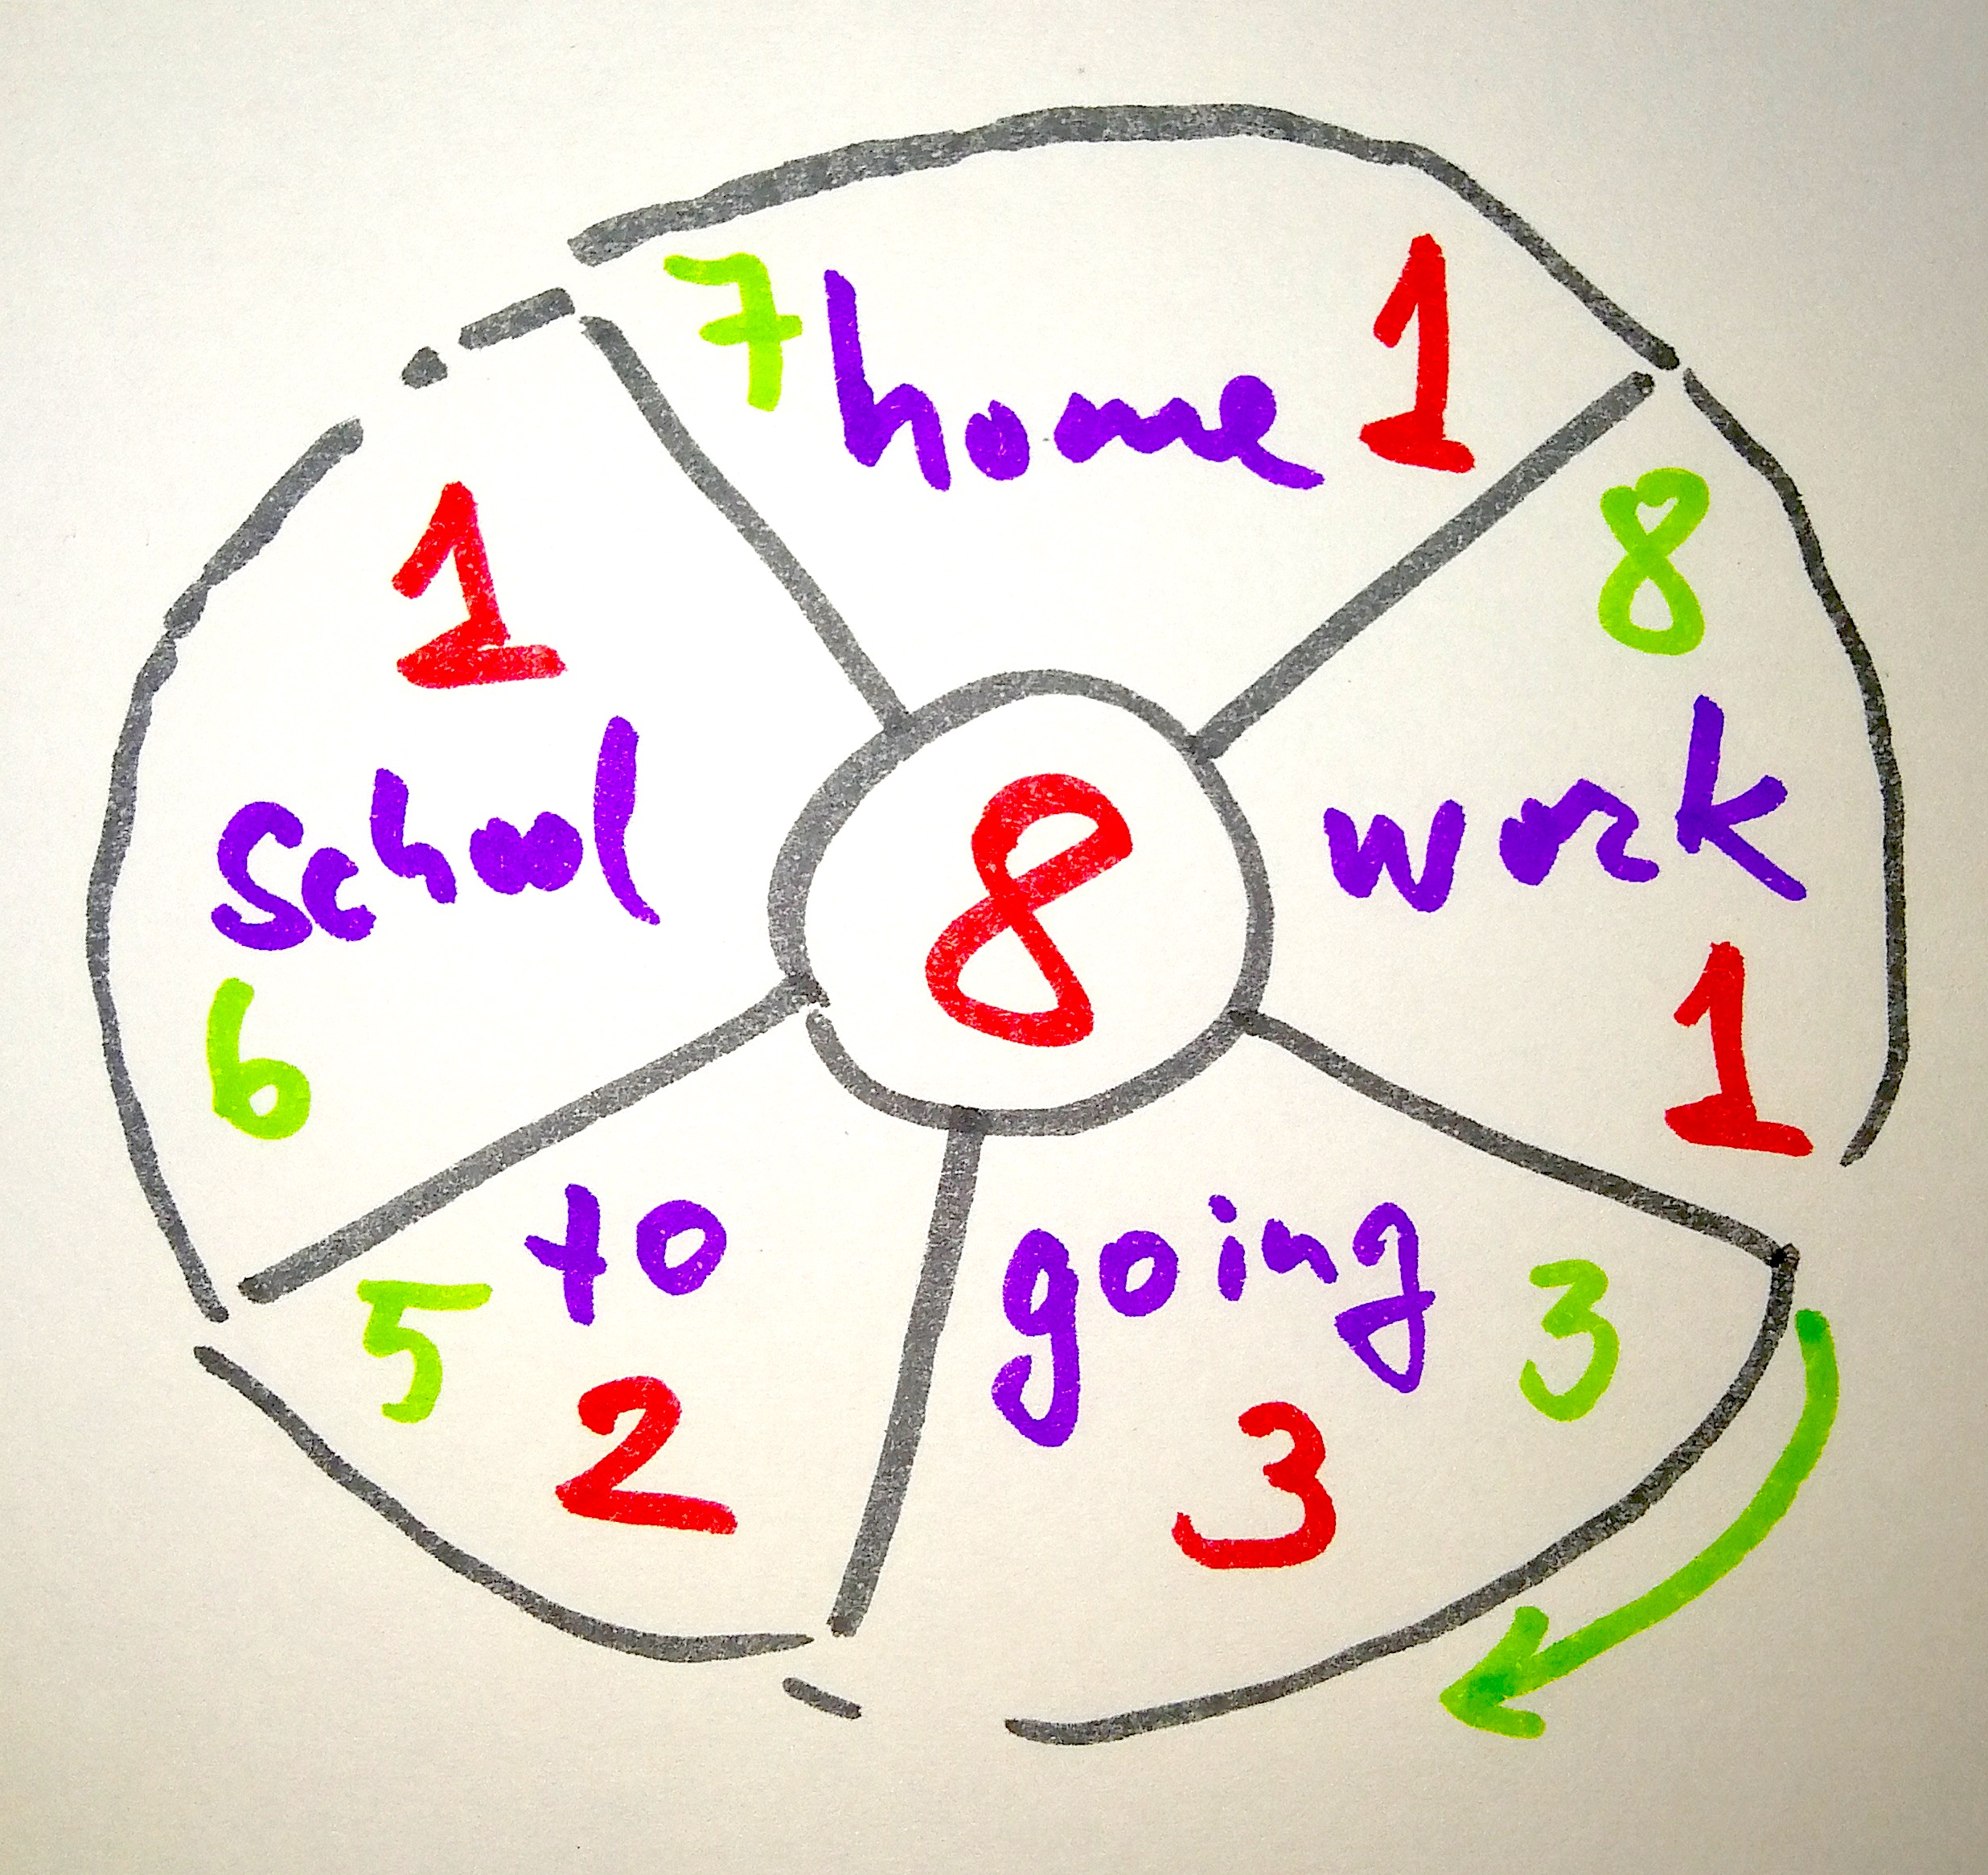 7 home 1
8
work
1
going 3
3
to
5
2
1
school
6
8